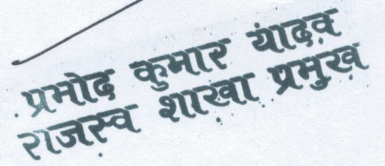 प्रमोद कुमार यादव
राजस्व शाखा प्रमुख